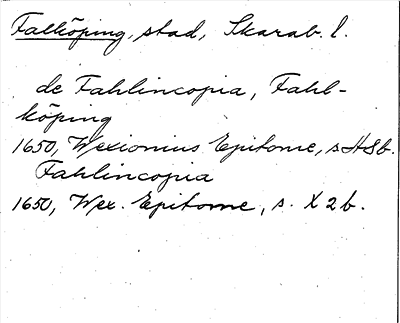 Falköping, stad, Skarab. l.
de Fahlincopia, Fahl-
köping
1650, Wexionius Epitome, s H8b.
Fahlincopia
1650, Wex. Epitome, s. X 2 b.